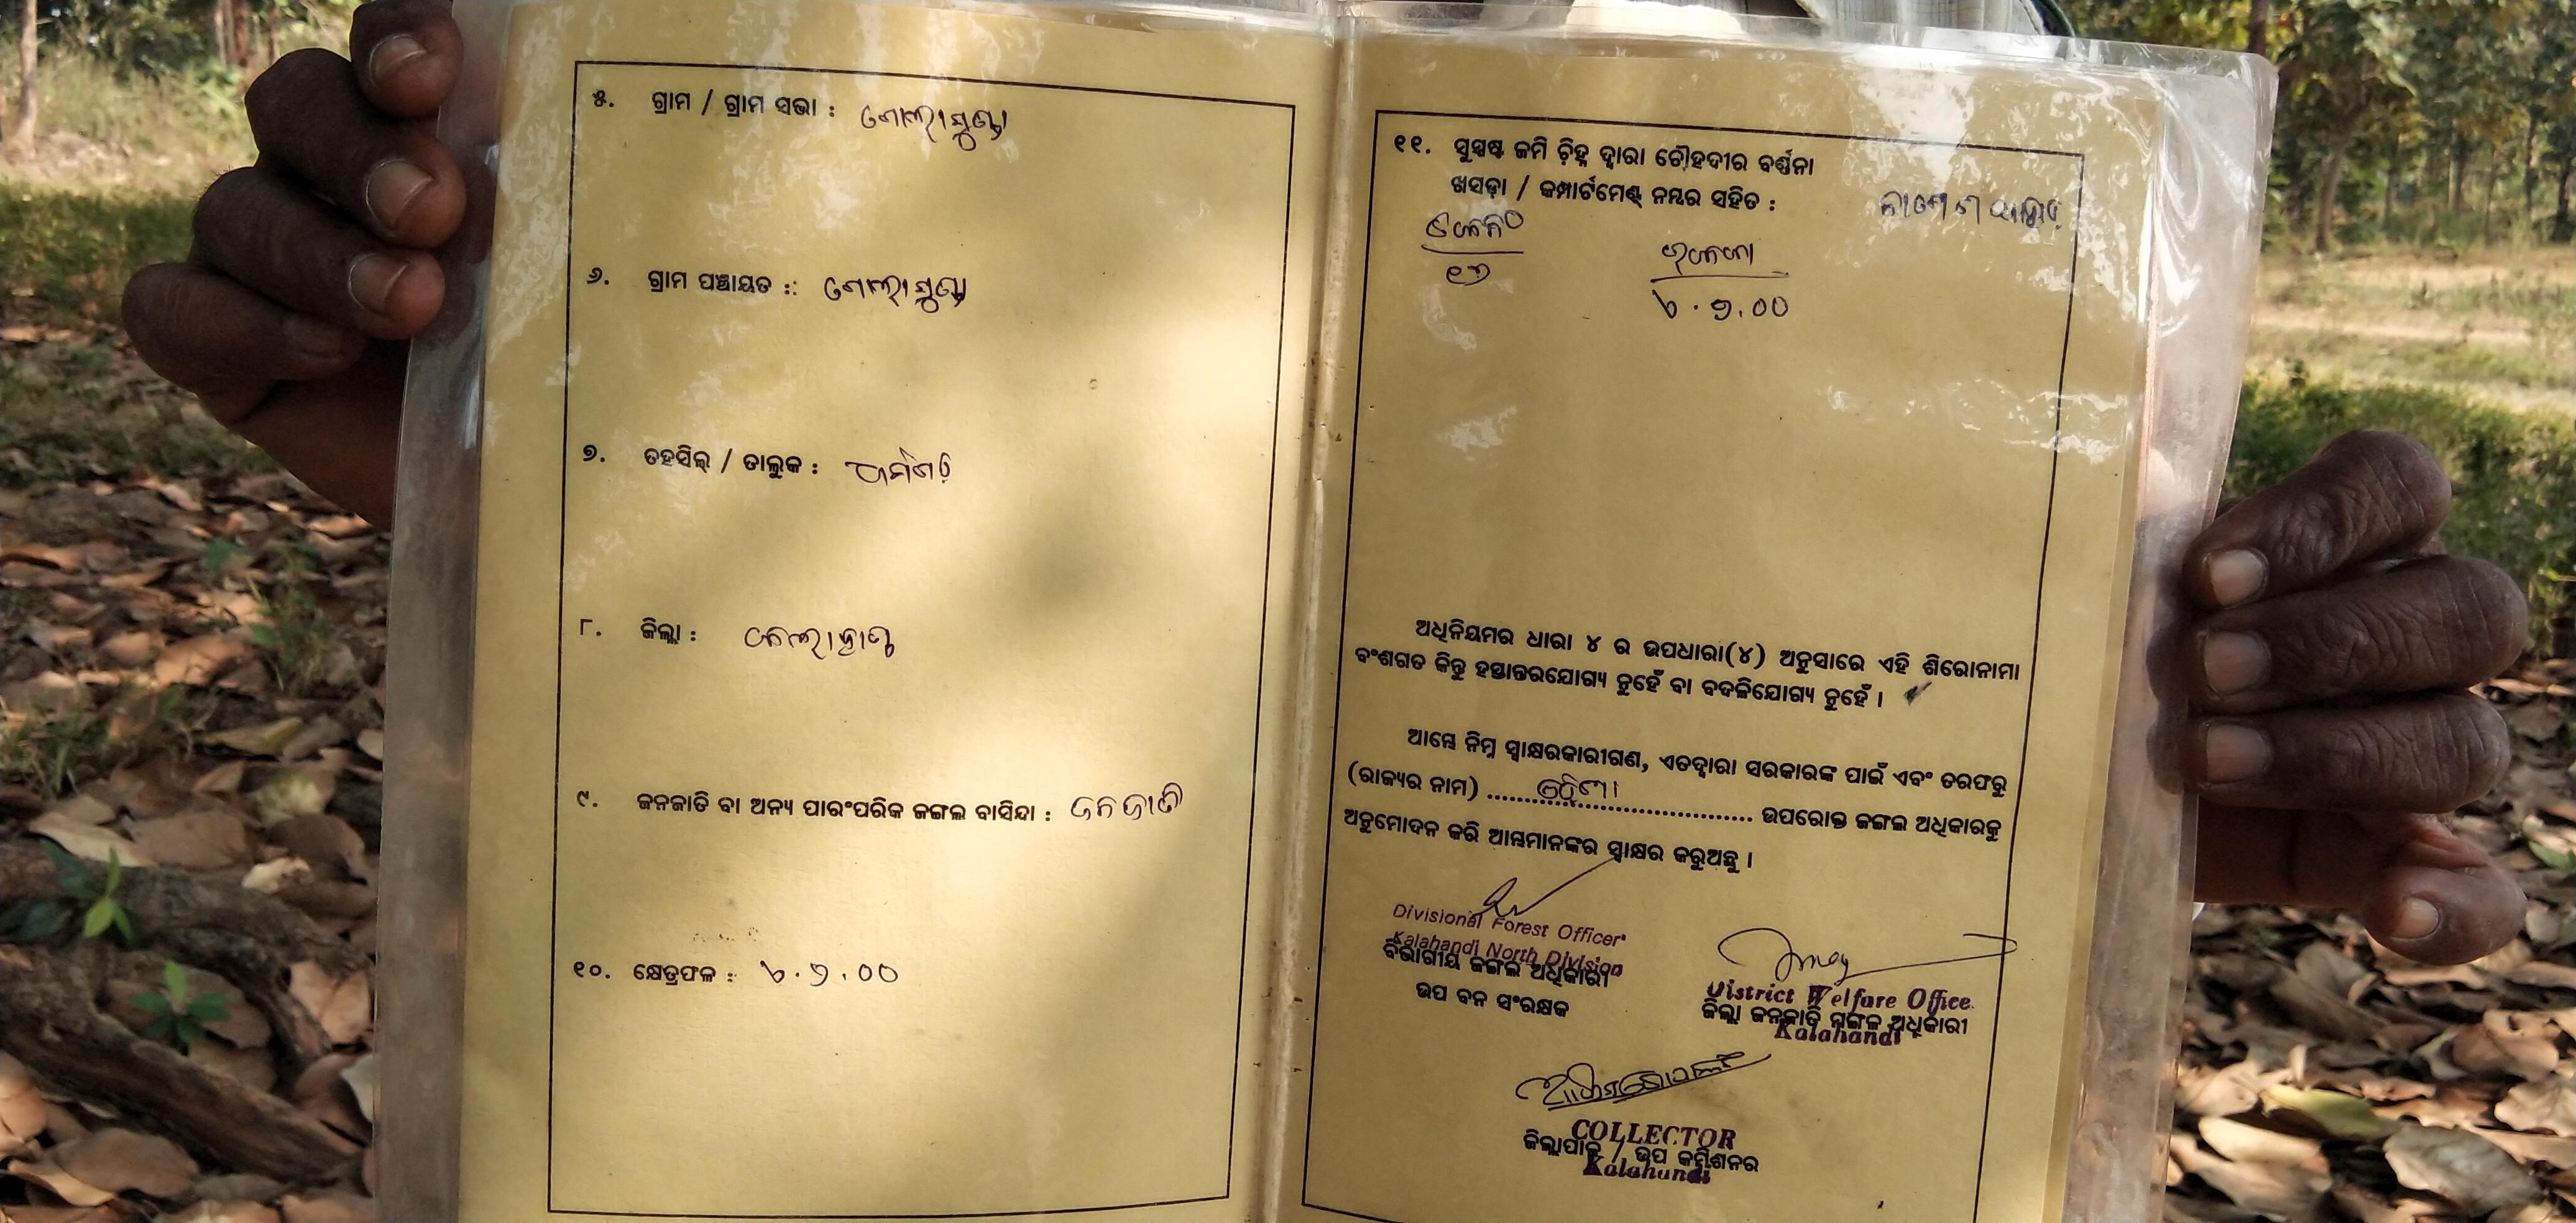 ୫. ଗ୍ରାମ / ଗ୍ରାମ ସଭା :
୬. ଗ୍ରାମ ପଞ୍ଚାୟତ ::
୭. ତହସିଲ୍ / ତାଲୁକ :
୮. ଜିଲ୍ଲା :
୯. ଜନଜାତି ବା ଅନ୍ୟ ପାରଂପରିକ ଜଙ୍ଗଲ ବାସିନ୍ଦା : ଜନଜାତି
୧୦. କ୍ଷେତ୍ରଫଳ : ୪.୨.୦୦
୧୧. ସୁସ୍ପଷ୍ଟ ଜମି ଚ଼ିହ୍ନ ଦ୍ଵାରା ଚୌହଦୀର ବର୍ଣ୍ଣନା
ଖସଡ଼ା / କମ୍ପାର୍ଟମେଣ୍ଟ୍ ନମ୍ବର ସହିତ :
୪.୨.୦୦
ଅଧିନିୟମର ଧାରା ୪ ର ଉପଧାରା(୪) ଅନୁସାରେ ଏହି ଶିରୋନାମା
ବଂଶଗତ କିନ୍ତୁ ହସ୍ତାନ୍ତରଯୋଗ୍ୟ ନୁହେଁ ବା ବଦଳିଯୋଗ୍ୟ ନୁହେଁ ।
ଆମ୍ଭେ ନିମ୍ନ ସ୍ଵାକ୍ଷରକାରୀଗଣ, ଏତଦ୍ଵାରା ସରକାରଙ୍କ ପାଇଁ ଏବଂ ତରଫରୁ
(ରାଜ୍ୟର ନାମ) ଓଡ଼ିଶା ଉପରୋକ୍ତ ଜଙ୍ଗଲ ଅଧିକାରକୁ
ଅନୁମୋଦନ କରି ଆମ୍ଭମାନଙ୍କର ସ୍ଵାକ୍ଷର କରୁଅଛୁ ।
Divisional Forest Officer
Kalahandi North Division
ବିଭାଗୀୟ ଜଙ୍ଗଲ ଅଧିକାରୀ
ଉପ ବନ ସଂରକ୍ଷକ
District Welfare Office
ଜିଲ୍ଲା ଜନଜାତି ମଙ୍ଗଳ ଅଧିକାରୀ
Kalahandi
COLLECTOR
ଜିଲ୍ଲାପାଳ / ଉପ କମିଶନର
Kalahandi